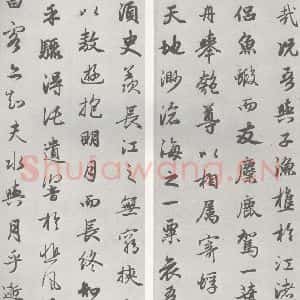 哉況吾與子漁樵於江渚
侶魚蝦而友麋鹿駕一葉
舟舉匏尊以相屬寄蜉
天地渺滄海之一粟哀吾
須臾羨長江之無窮挾
以敖遊抱明月而長終知
乎驟得託遺響於悲風
曰客亦知夫水與月乎逝
Shufawang.CN